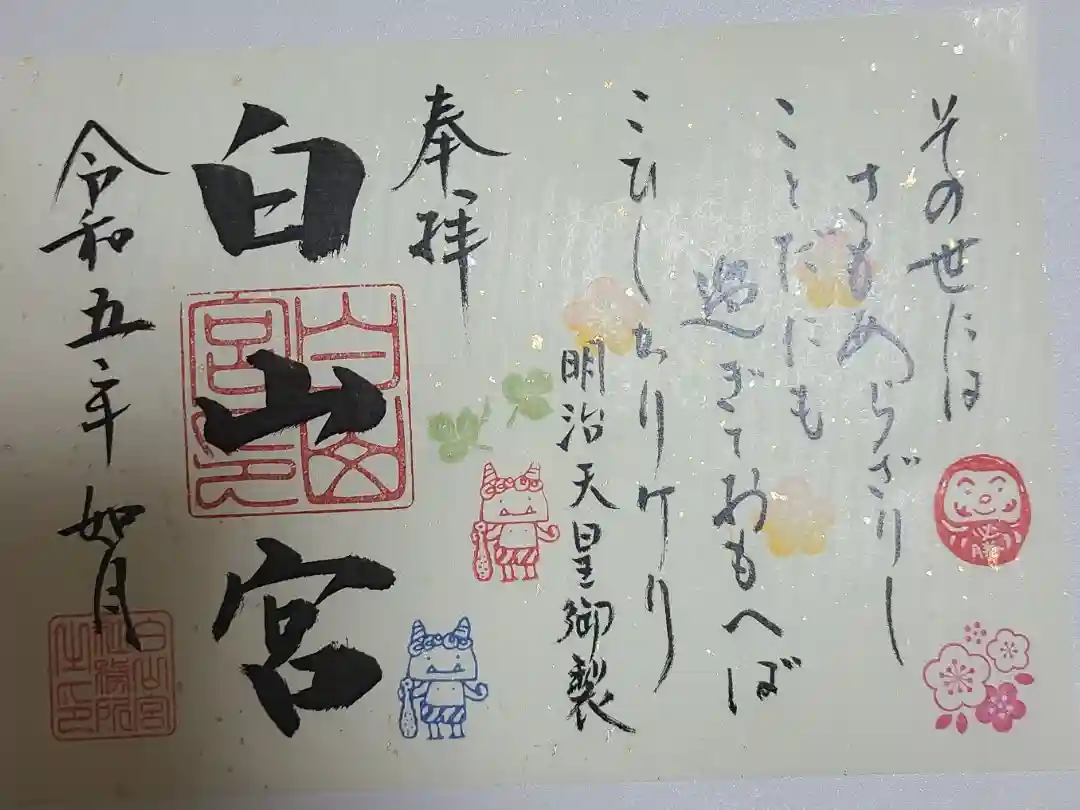 その世には
さもあらざりし
ことだにも
過ぎておもへば
こひしかりけり
明治天皇御製
奉拝
白山宮
白山宮印
令和五年如月
白山宮社務所之印